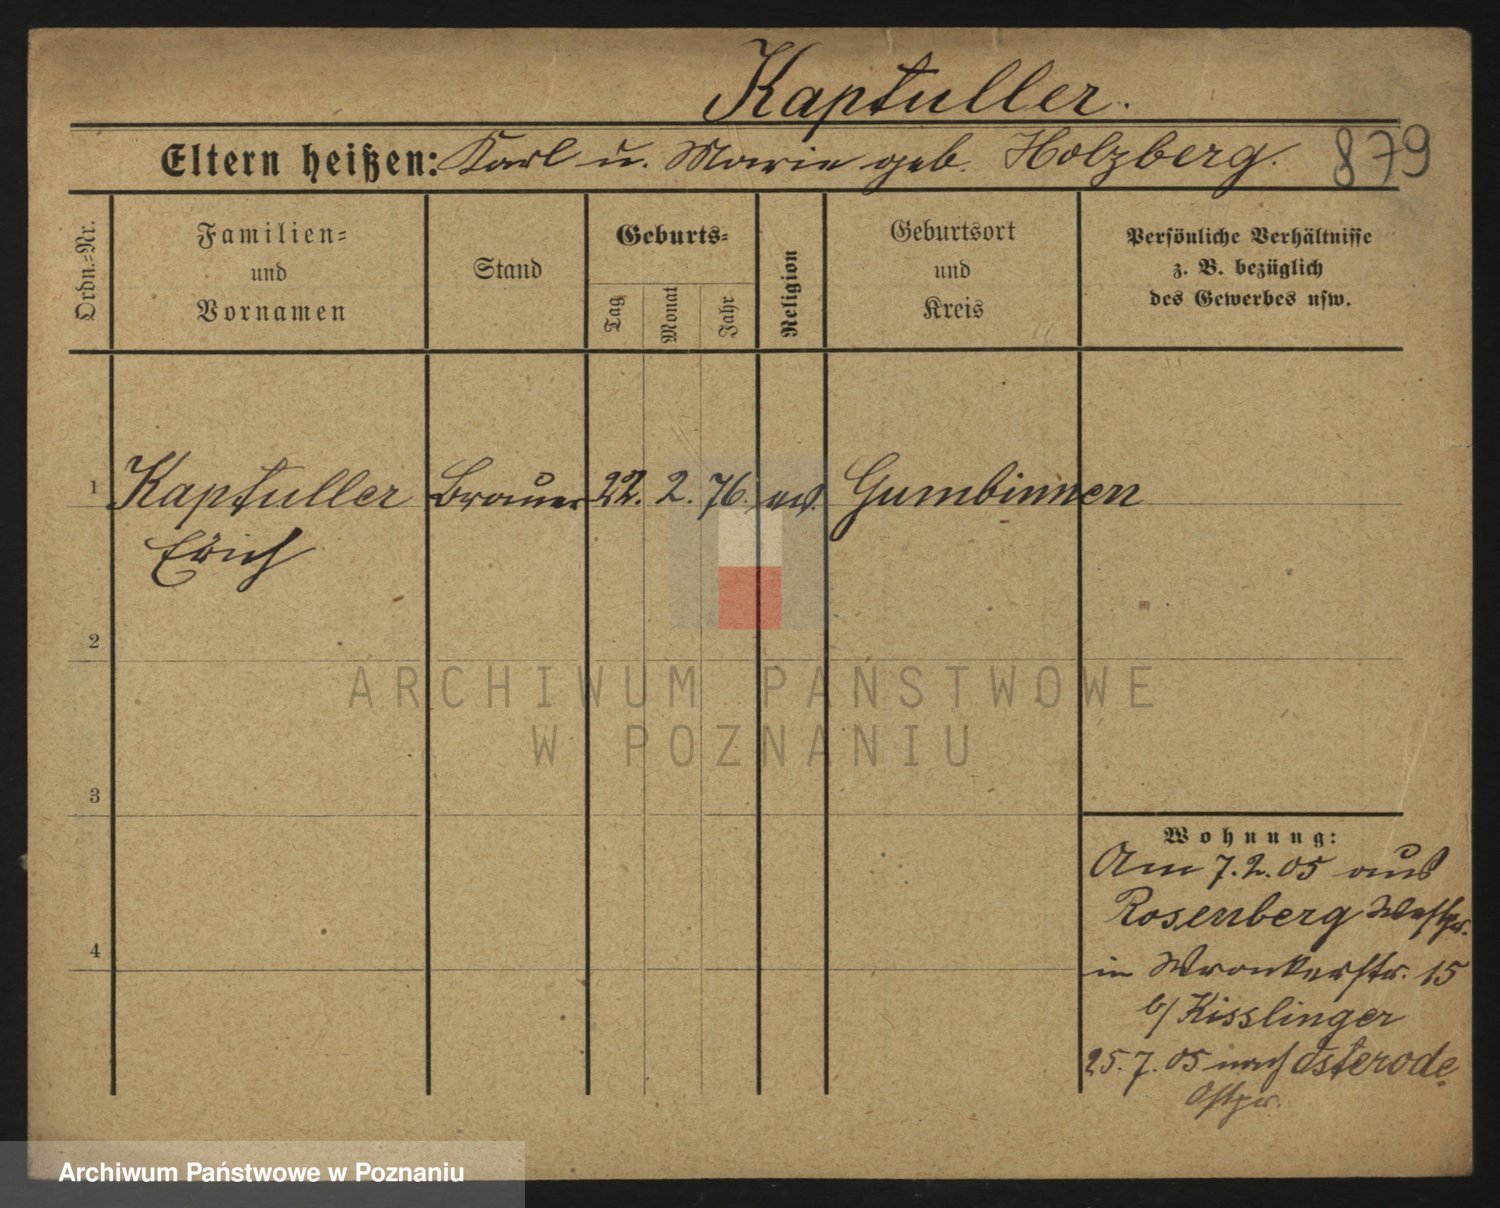 Kaptuller.
Eltern heißen: Karl u. Marie geb. Holzberg.
879
Ordn.-Nr.
Familien-
und
Vornamen
Stand
Geburts-
Tag
Monat
Jahr
Religion
Geburtsort
und
Kreis
Persönliche Verhältnisse
z. B. bezüglich
des Gewerbes usw.
1 Kaptuller Brauer 22. 2. 76. ev. Gumbinnen
Erich
2
3
4
Wohnung:
Am 7.2.05 aus
Rosenberg Westpr.
in Wronkerstr. 15
b/ Kisslinger
25.7.05 nach Osterode
Ostpr.
ARCHIWUM PAŃSTWOWE
W POZNANIU
Archiwum Państwowe w Poznaniu